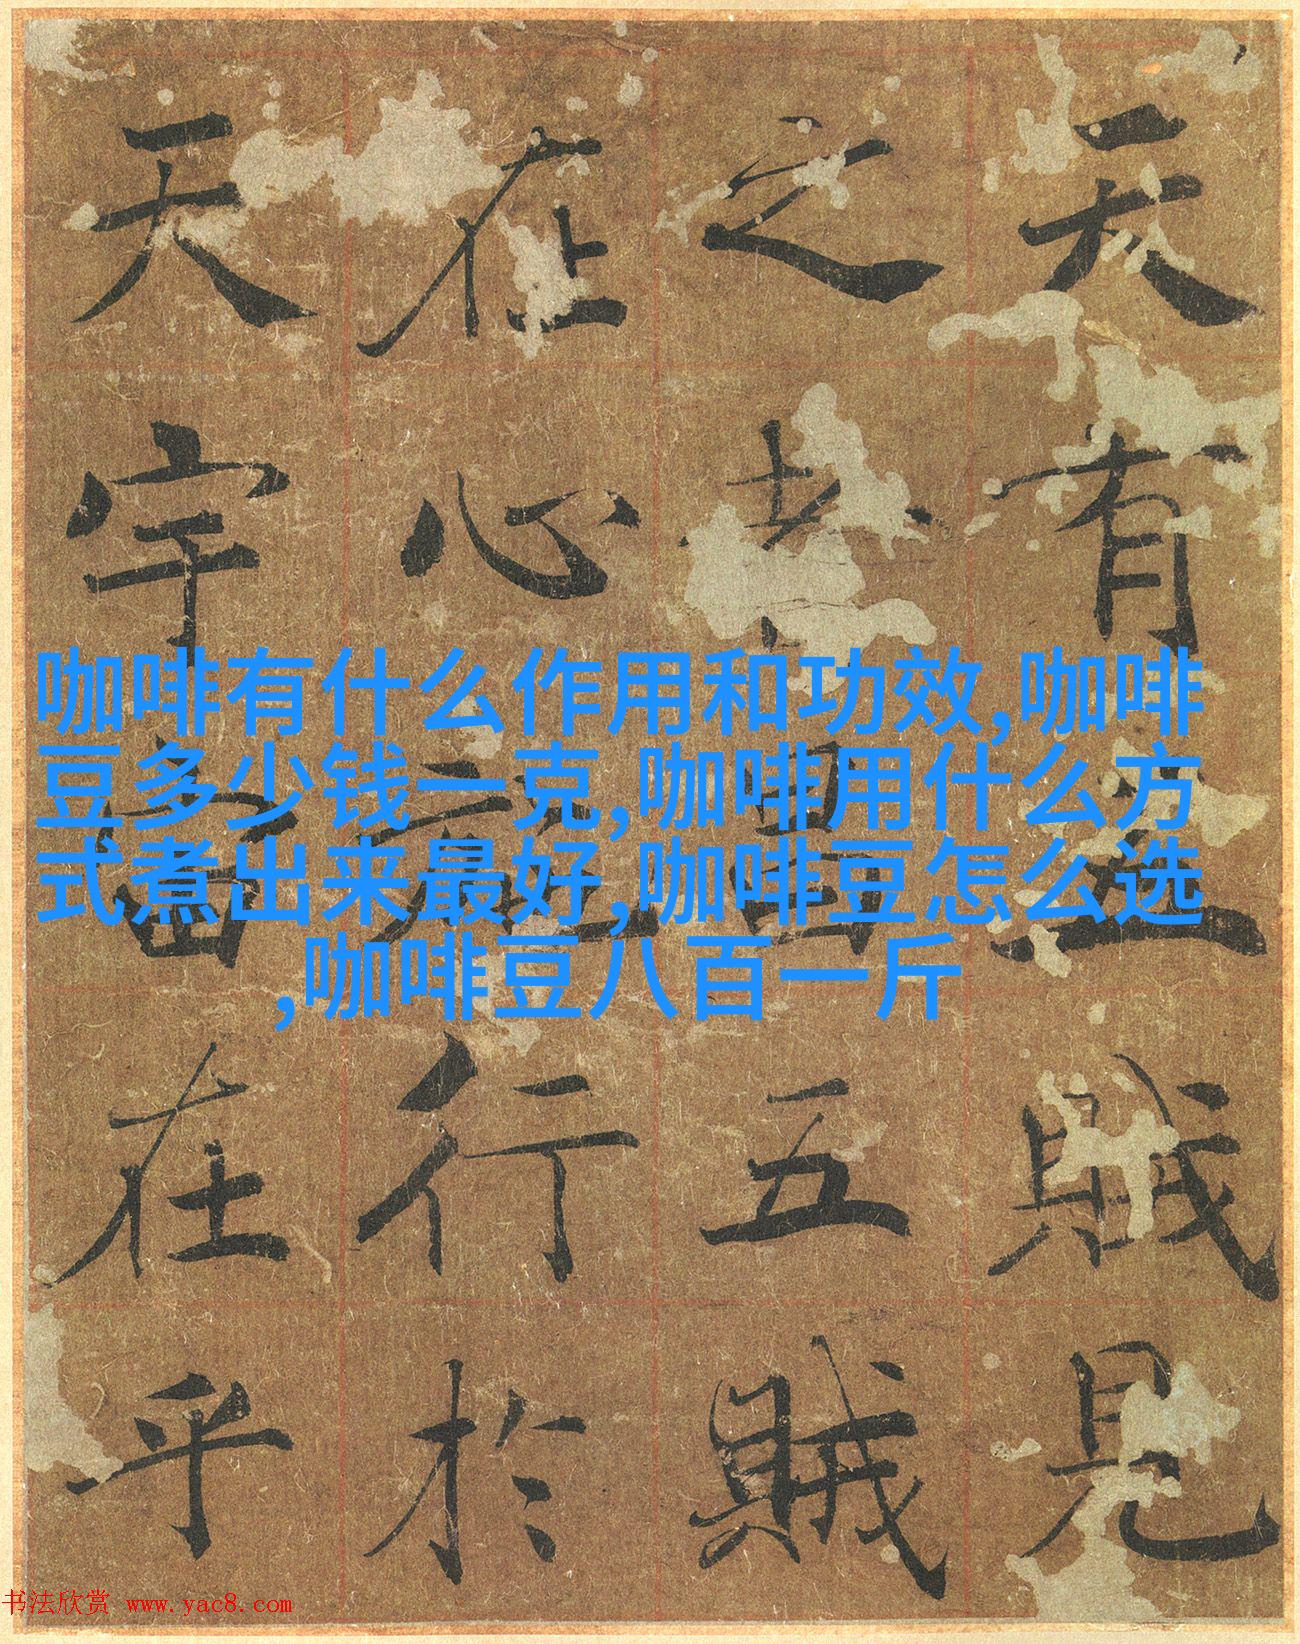 天有五賊見
之者昌五賊
在心施行於
天宇宙在乎
咖啡有什么作用和功效,咖啡
豆多少钱一克,咖啡用什么方
式煮出来最好,咖啡豆怎么选
,咖啡豆八百一斤
书法欣赏 www.yac8.com